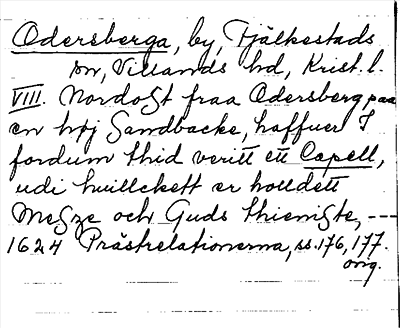 Odersberga, by, Fjälkestads
sn, Villands hd, Krist. l.
VIII. Nordost fraa Odersberg paa
en höj Sandbacke, haffuer I
fordum thid veritt ett Capell,
udi huillckett er holldett
Mesze och Guds thieniste, ---
1624 Prästrelationerna, ss. 176, 177.
orig.